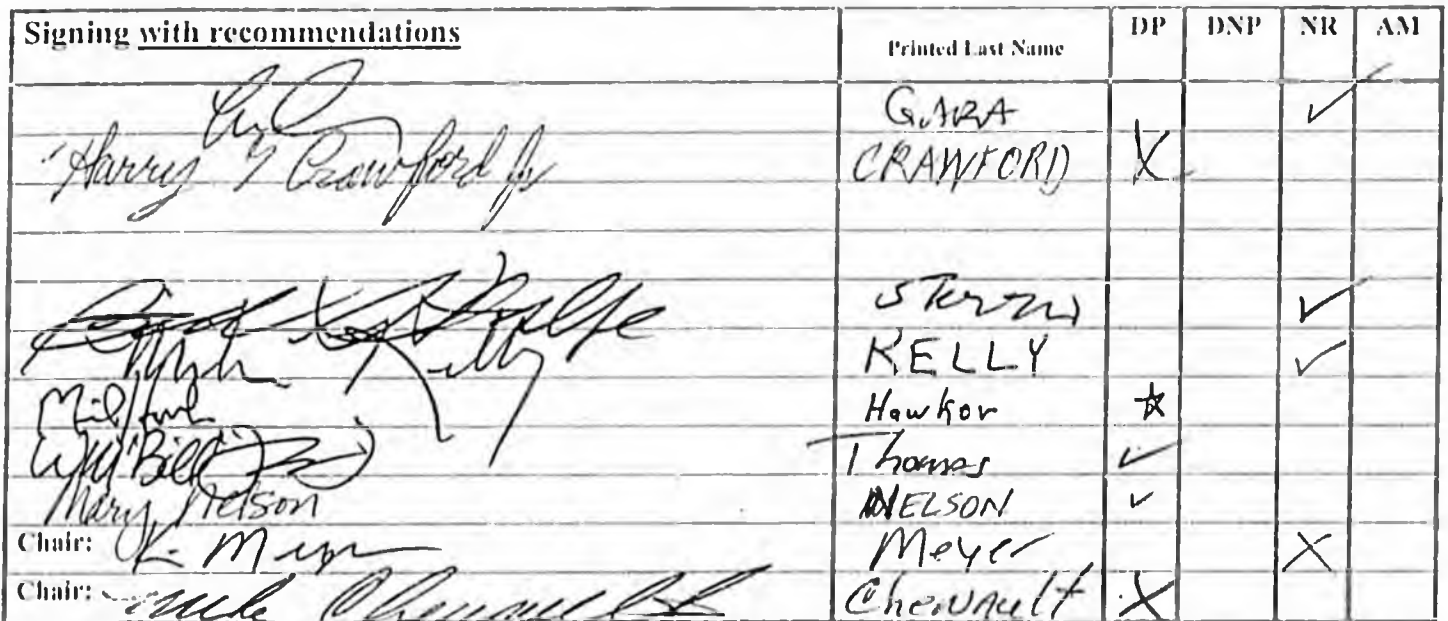 Signing with recommendations Printed Last Name DP DNP NR AM
GARA ✓
Harry T Crawford Jr CRAWFORD X
✓
Kelly KELLY ✓
Hawker ☆
Wm "Bill" Thomas ✓
Mary Nelson NELSON ✓
Chair: K. Meyer Meyer X
Chair: Mike Chenault Chenault X